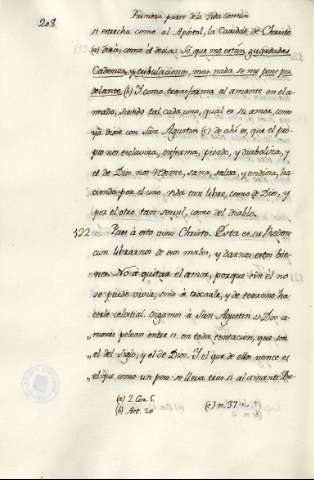 208
Primera parte de la Vida comun
si estrecha como al Apostol, la Caridad de Christo
(a) diria, como el decia: Sè que me están guardadas
Cadenas, y tribulaciones, mas nada se me pone por
delante (b) Y como transforma al amante en el a-
mado, siendo tal cada uno, qual es su amor, como
ya dixe con San Agustin (c) de ahí es, que el pro-
pio nos esclaviza, enferma, pierde, y diaboliza, y
el de Dios nos redime, sana, salva, y endiosa, ha-
ciendo por el uno vida tan libre, como de Dios, y
por el otro tan servil, como del diablo.
122 Pues à esto vino Christo. Esta es su Redencion
librarnos de esos males, y darnos estos bie-
nes. No à quitar el amar, porque sin el no
se puede vivir, sino à trocarle, y de terreno ha-
cerle celestial. Oigamos à San Agustin. Dos a-
mores pelean entre si en toda tentacion, que son
el del Siglo, y el de Dios. Y el que de ellos vence es
el que como un peso se lleva tras si al amante. De-
(a) 2. Cor. 5.
(b) Act. 20
(c) n. 37